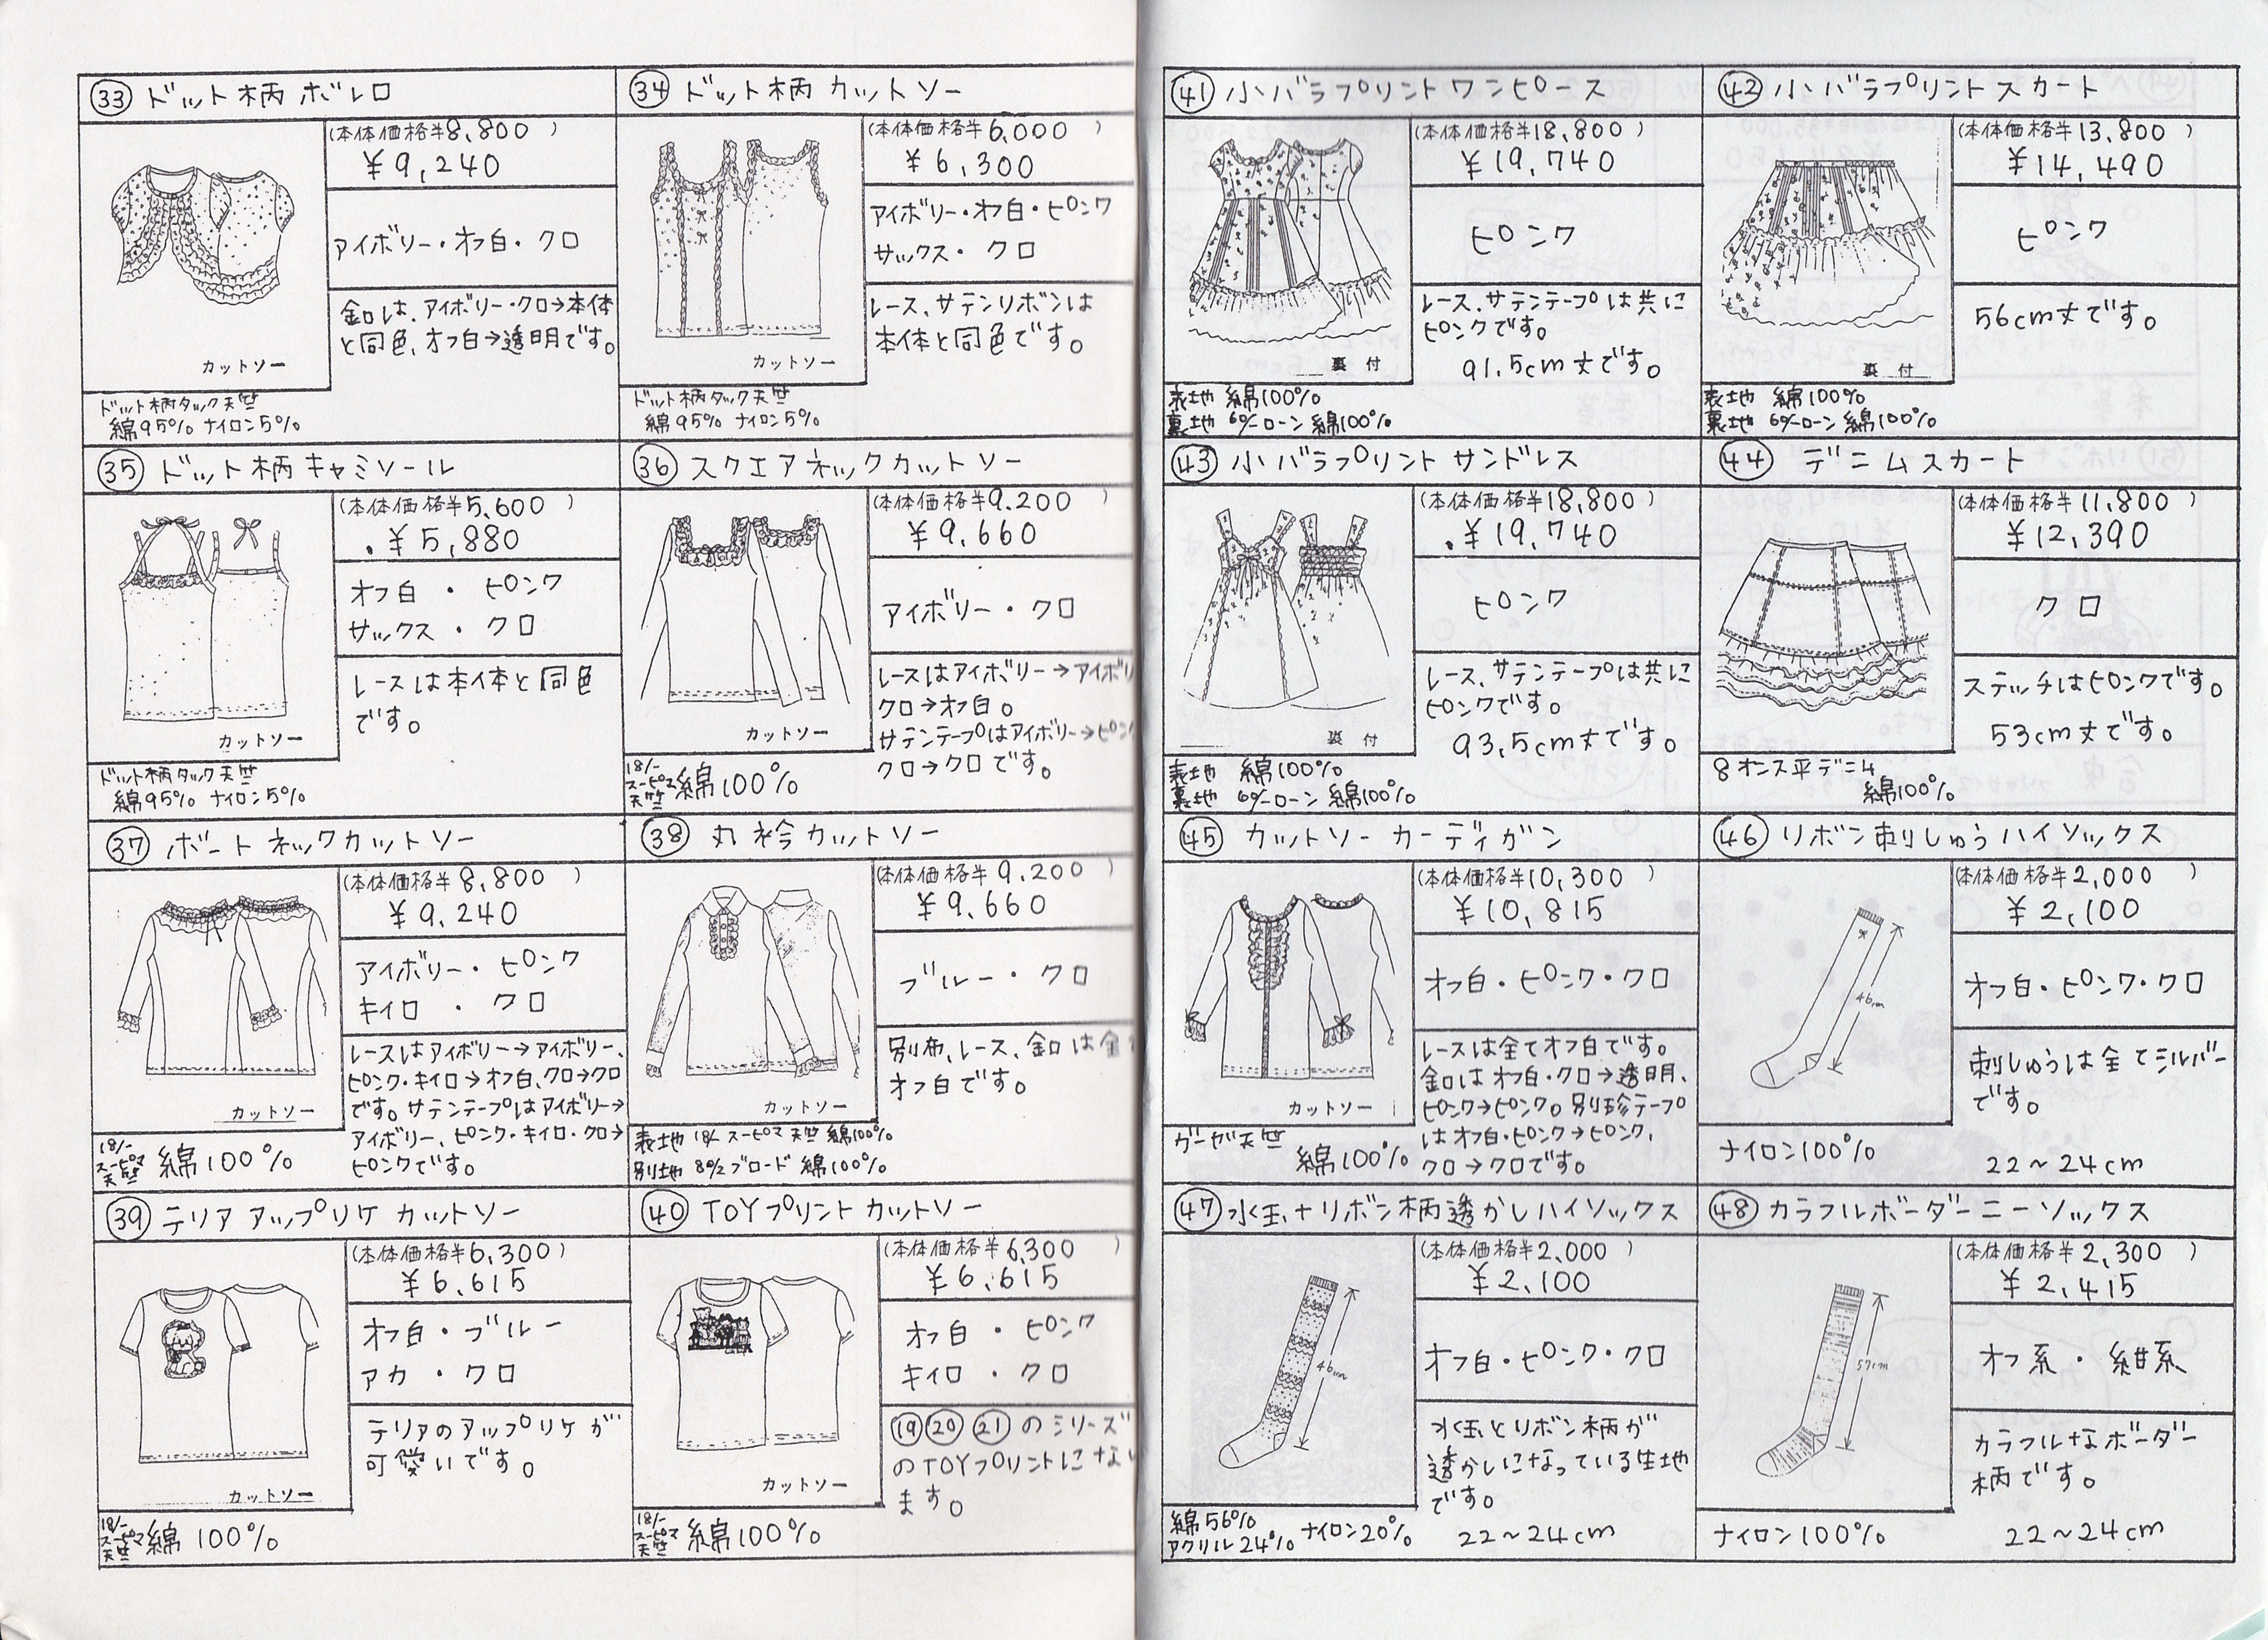 ㉝ ドット柄 ボレロ
(本体価格¥8,800 )
¥9,240
アイボリー・オフ白・クロ
釦は、アイボリー・クロ→本体
と同色、オフ白→透明です。
カットソー
ドット柄タック天竺
綿95% ナイロン5%
㉞ ドット柄 カットソー
(本体価格¥6,000 )
¥6,300
アイボリー・オフ白・ピンク
サックス・クロ
レース、サテンリボンは
本体と同色です。
カットソー
ドット柄タック天竺
綿95% ナイロン5%
㉟ ドット柄キャミソール
(本体価格¥5,600 )
¥5,880
オフ白・ピンク
サックス・クロ
レースは本体と同色
です。
カットソー
ドット柄タック天竺
綿95% ナイロン5%
㊱ スクエアネックカットソー
(本体価格¥9,200 )
¥9,660
アイボリー・クロ
レースはアイボリー→アイボリ
クロ→オフ白。
サテンテープはアイボリー→ピン
クロ→クロです。
カットソー
18/-
スーピマ
天竺 綿100%
㊲ ボートネックカットソー
(本体価格¥8,800 )
¥9,240
アイボリー・ピンク
キイロ・クロ
レースはアイボリー→アイボリー、
ピンク・キイロ→オフ白、クロ→クロ
です。サテンテープはアイボリー→
アイボリー、ピンク・キイロ・クロ→
ピンクです。
カットソー
18/-
スーピマ
天竺 綿100%
㊳ 丸衿カットソー
(本体価格¥9,200 )
¥9,660
ブルー・クロ
別布、レース、釦は全
オフ白です。
カットソー
表地 18/- スーピマ天竺 綿100%
別地 80/2ブロード 綿100%
㊴ テリアアップリケカットソー
(本体価格¥6,300)
¥6,615
オフ白・ブルー
アカ・クロ
テリアのアップリケが
可愛いです。
カットソー
18/-
スーピマ
天竺 綿100%
㊵ TOYプリントカットソー
(本体価格¥6,300 )
¥6,615
オフ白・ピンク
キイロ・クロ
⑲⑳㉑のシリーズ
のTOYプリントになり
ます。
カットソー
18/-
スーピマ
天竺 綿100%
㊶ 小バラプリントワンピース
(本体価格¥18,800 )
¥19,740
ピンク
レース、サテンテープは共に
ピンクです。
91.5cm丈です。
裏付
表地 綿100%
裏地 60/-ローン 綿100%
㊷ 小バラプリントスカート
(本体価格¥13,800 )
¥14,490
ピンク
56cm丈です。
裏付
表地 綿100%
裏地 60/-ローン 綿100%
㊸ 小バラプリントサンドレス
(本体価格¥18,800 )
¥19,740
ピンク
レース、サテンテープは共に
ピンクです。
93.5cm丈です。
裏付
表地 綿100%
裏地 60/-ローン 綿100%
㊹ デニムスカート
(本体価格¥11,800 )
¥12,390
クロ
ステッチはピンクです。
53cm丈です。
8オンス平デニム
綿100%
㊺ カットソーカーディガン
(本体価格¥10,300 )
¥10,815
オフ白・ピンク・クロ
レースは全てオフ白です。
釦はオフ白・クロ→透明、
ピンク→ピンク。別珍テープ
はオフ白・ピンク→ピンク、
クロ→クロです。
カットソー
ガーゼ天竺
綿100%
㊻ リボン刺しゅうハイソックス
(本体価格¥2,000 )
¥2,100
46cm
オフ白・ピンク・クロ
刺しゅうは全てシルバー
です。
ナイロン100%
22~24cm
㊼ 水玉+リボン柄透かしハイソックス
(本体価格¥2,000 )
¥2,100
46cm
オフ白・ピンク・クロ
水玉とリボン柄が
透かしになっている生地
です。
綿56%
アクリル24% ナイロン20%
22~24cm
㊽ カラフルボーダーニーソックス
(本体価格¥2,300 )
¥2,415
57cm
オフ系・紺系
カラフルなボーダー
柄です。
ナイロン100%
22~24cm